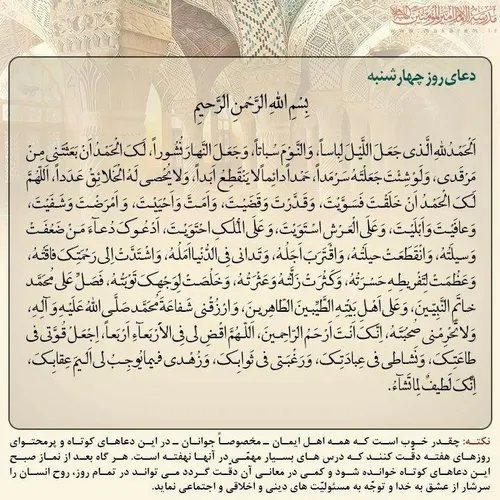 مدرسة الإمام أمير المؤمنین
www.makarem.ir
دعای روز چهارشنبه
بِسْمِ اللهِ الرَّحْمنِ الرَّحیمِ
اَلْحَمْدُ لِلّهِ الَّذی جَعَلَ اللَّیْلَ لِباساً، وَالنَّوْمَ سُباتاً، وَجَعَلَ النَّهارَ نُشُوراً، لَکَ الْحَمْدُ اَنْ بَعَثْتَنی مِنْ
مَرْقَدی، وَلَوْ شِئْتَ جَعَلْتَهُ سَرْمَداً، حَمْداً دائِماً لا یَنْقَطِعُ اَبَداً، وَلا یُحْصی لَهُ الْخَلائِقُ عَدَداً، اَللّهُمَّ
لَکَ الْحَمْدُ اَنْ خَلَقْتَ فَسَوَّیْتَ، وَقَدَّرْتَ وَقَضَیْتَ، وَاَمَتَّ وَاَحْیَیْتَ، وَاَمْرَضْتَ وَشَفَیْتَ،
وَعافَیْتَ وَاَبْلَیْتَ، وَعَلَی الْعَرْشِ اسْتَوَیْتَ، وَعَلَی الْمُلْکِ احْتَوَیْتَ، اَدْعُوکَ دُعآءَ مَنْ ضَعُفَتْ
وَسیلَتُهُ، وَانْقَطَعَتْ حیلَتُهُ، وَاقْتَرَبَ اَجَلُهُ، وَتَدانی فِی الدُّنْیا اَمَلُهُ، وَاشْتَدَّتْ اِلی رَحْمَتِکَ فاقَتُهُ،
وَعَظُمَتْ لِتَفْریطِهِ حَسْرَتُهُ، وَکَثُرَتْ زَلَّتُهُ وَعَثْرَتُهُ، وَخَلَصَتْ لِوَجْهِکَ تَوْبَتُهُ، فَصَلِّ عَلی مُحَمَّد
خاتَمِ النَّبِیّینَ، وَعَلی اَهْلِ بَیْتِهِ الطَّیِّبینَ الطّاهِرینَ، وَارْزُقْنی شَفاعَةَ مُحَمَّد صَلَّی اللهُ عَلَیْهِ وَآلِهِ،
وَلا تَحْرِمْنی صُحْبَتَهُ، اِنَّکَ اَنْتَ اَرْحَمُ الرّاحِمینَ، اَللّهُمَّ اقْضِ لی فِی الاَْرْبَعآءِ اَرْبَعاً، اِجْعَلْ قُوَّتی فی
طاعَتِکَ، وَنَشاطی فی عِبادَتِکَ، وَرَغْبَتی فی ثَوابِکَ، وَزُهْدی فیما یُوجِبُ لی اَلیمَ عِقابِکَ،
اِنَّکَ لَطیفٌ لِما تَشآءُ.
نکته: چقدر خوب است که همه اهل ایمان ـ مخصوصاً جوانان ـ در این دعاهای کوتاه و پرمحتوای
روزهای هفته دقت کنند که درس های بسیار مهمّی در آنها نهفته است. هر گاه بعد از نماز صبح
این دعاهای کوتاه خوانده شود و کمی در معانی آن دقت گردد می تواند در تمام روز، روح انسان را
سرشار از عشق به خدا و توجّه به مسئولیّت های دینی و اخلاقی و اجتماعی نماید.